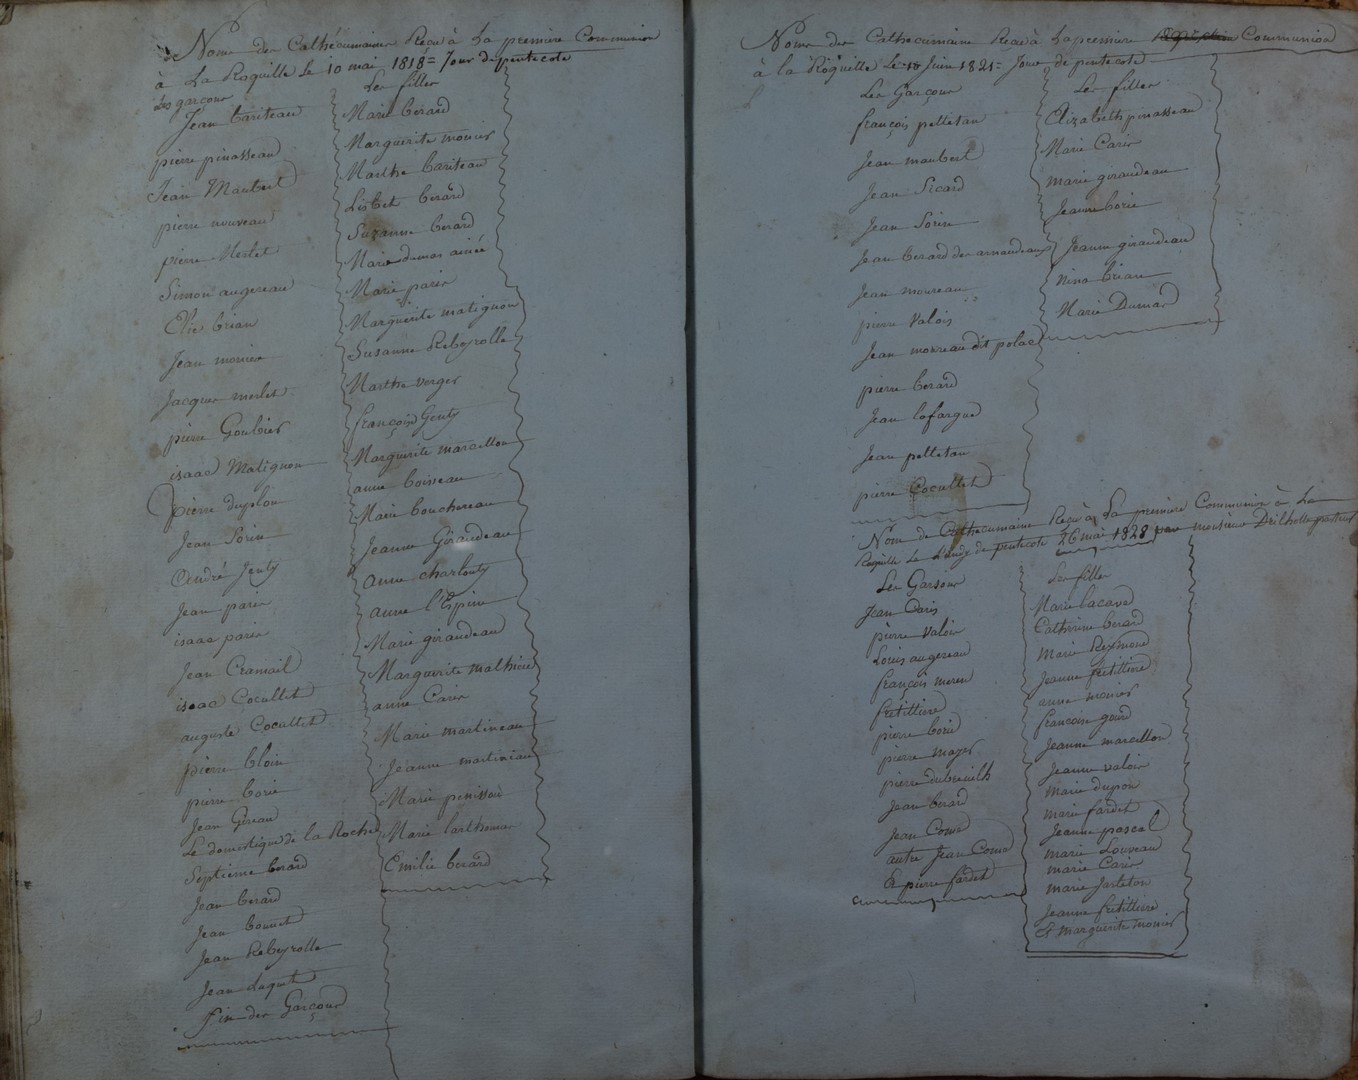 Noms des Cathécumaines Reçu à La première Communion
à La Roquille Le 10 mai 1818 = Jour de pentecote
Les garçons
Jean bariteau
pierre pinasseau
Jean Maubert
pierre nouveau
pierre Merlet
Simon augereau
Elie brian
Jean monier
Jacques merlet
pierre Goubier
isaac Matignon
pierre duplon
Jean Sorin
André Genty
Jean paris
isaac paris
Jean Cramail
isaac Cocullet
auguste Cocullet
pierre bloin
pierre borie
Jean Gereau
Le domestique de la Roche
Septieme berard
Jean berard
Jean bonnet
Jean Rebeyrolle
Jean laquet
fin des Garçons
Les filles
Marie berard
Marguerite monier
Marthe bariteau
Lisbet berard
Suzanne berard
Marie dumas ainée
Marie paris
Marguerite matignon
Susanne Rebeyrolle
Marthe verger
françoise Genty
Marguerite marcellon
anne boisseau
Marie bouchereau
Jeanne Giraudeau
anne charlouty
anne l'Espine
Marie giraudeau
Marguerite mathieu
anne Carie
Marie martineau
Jeanne martineau
Marie penisson
Marie larthomas
Emilie berard
Noms des Cathecumaine Reçu à La premiere Communion
à la Roquille Le 10 Juin 1821 = Jour de pentecote
Les Garçons
françois pelletan
Jean maubert
Jean Sicard
Jean Sorin
Jean berard des arnaudeaux
Jean moureau
pierre Valois
Jean moureau dit polac
pierre berard
Jean lafargue
Jean pelletan
pierre Cocullet
Les filles
Elizabeth pinasseau
Marie Carie
marie giraudeau
Jeanne borie
Jeanne giraudeau
Nina brian
Marie Dumas
Nom de Cathecumaine Reçu à La première Communion à La
Roquille Le Lundy de pentecote 26 mai 1828 par monsieur Drilholle pasteur
Les Garsons
Jean Daris
pierre Valois
Louis augereau
françois moreu
fretilliere
pierre borie
pierre mazer
pierre dubreuilh
Jean berard
Jean Come
autre Jean Come
Et pierre fardet
Les filles
Marie lacave
Catherine berard
Marie Reymond
Jeanne fretilliere
anne monier
françoise gourd
Jeanne marcellon
Jeanne valois
Marie dupon
marie fardet
Jeanne pascal
marie Louveau
marie Carie
marie Jarleton
Jeanne fretilliere
Et marguerite monier